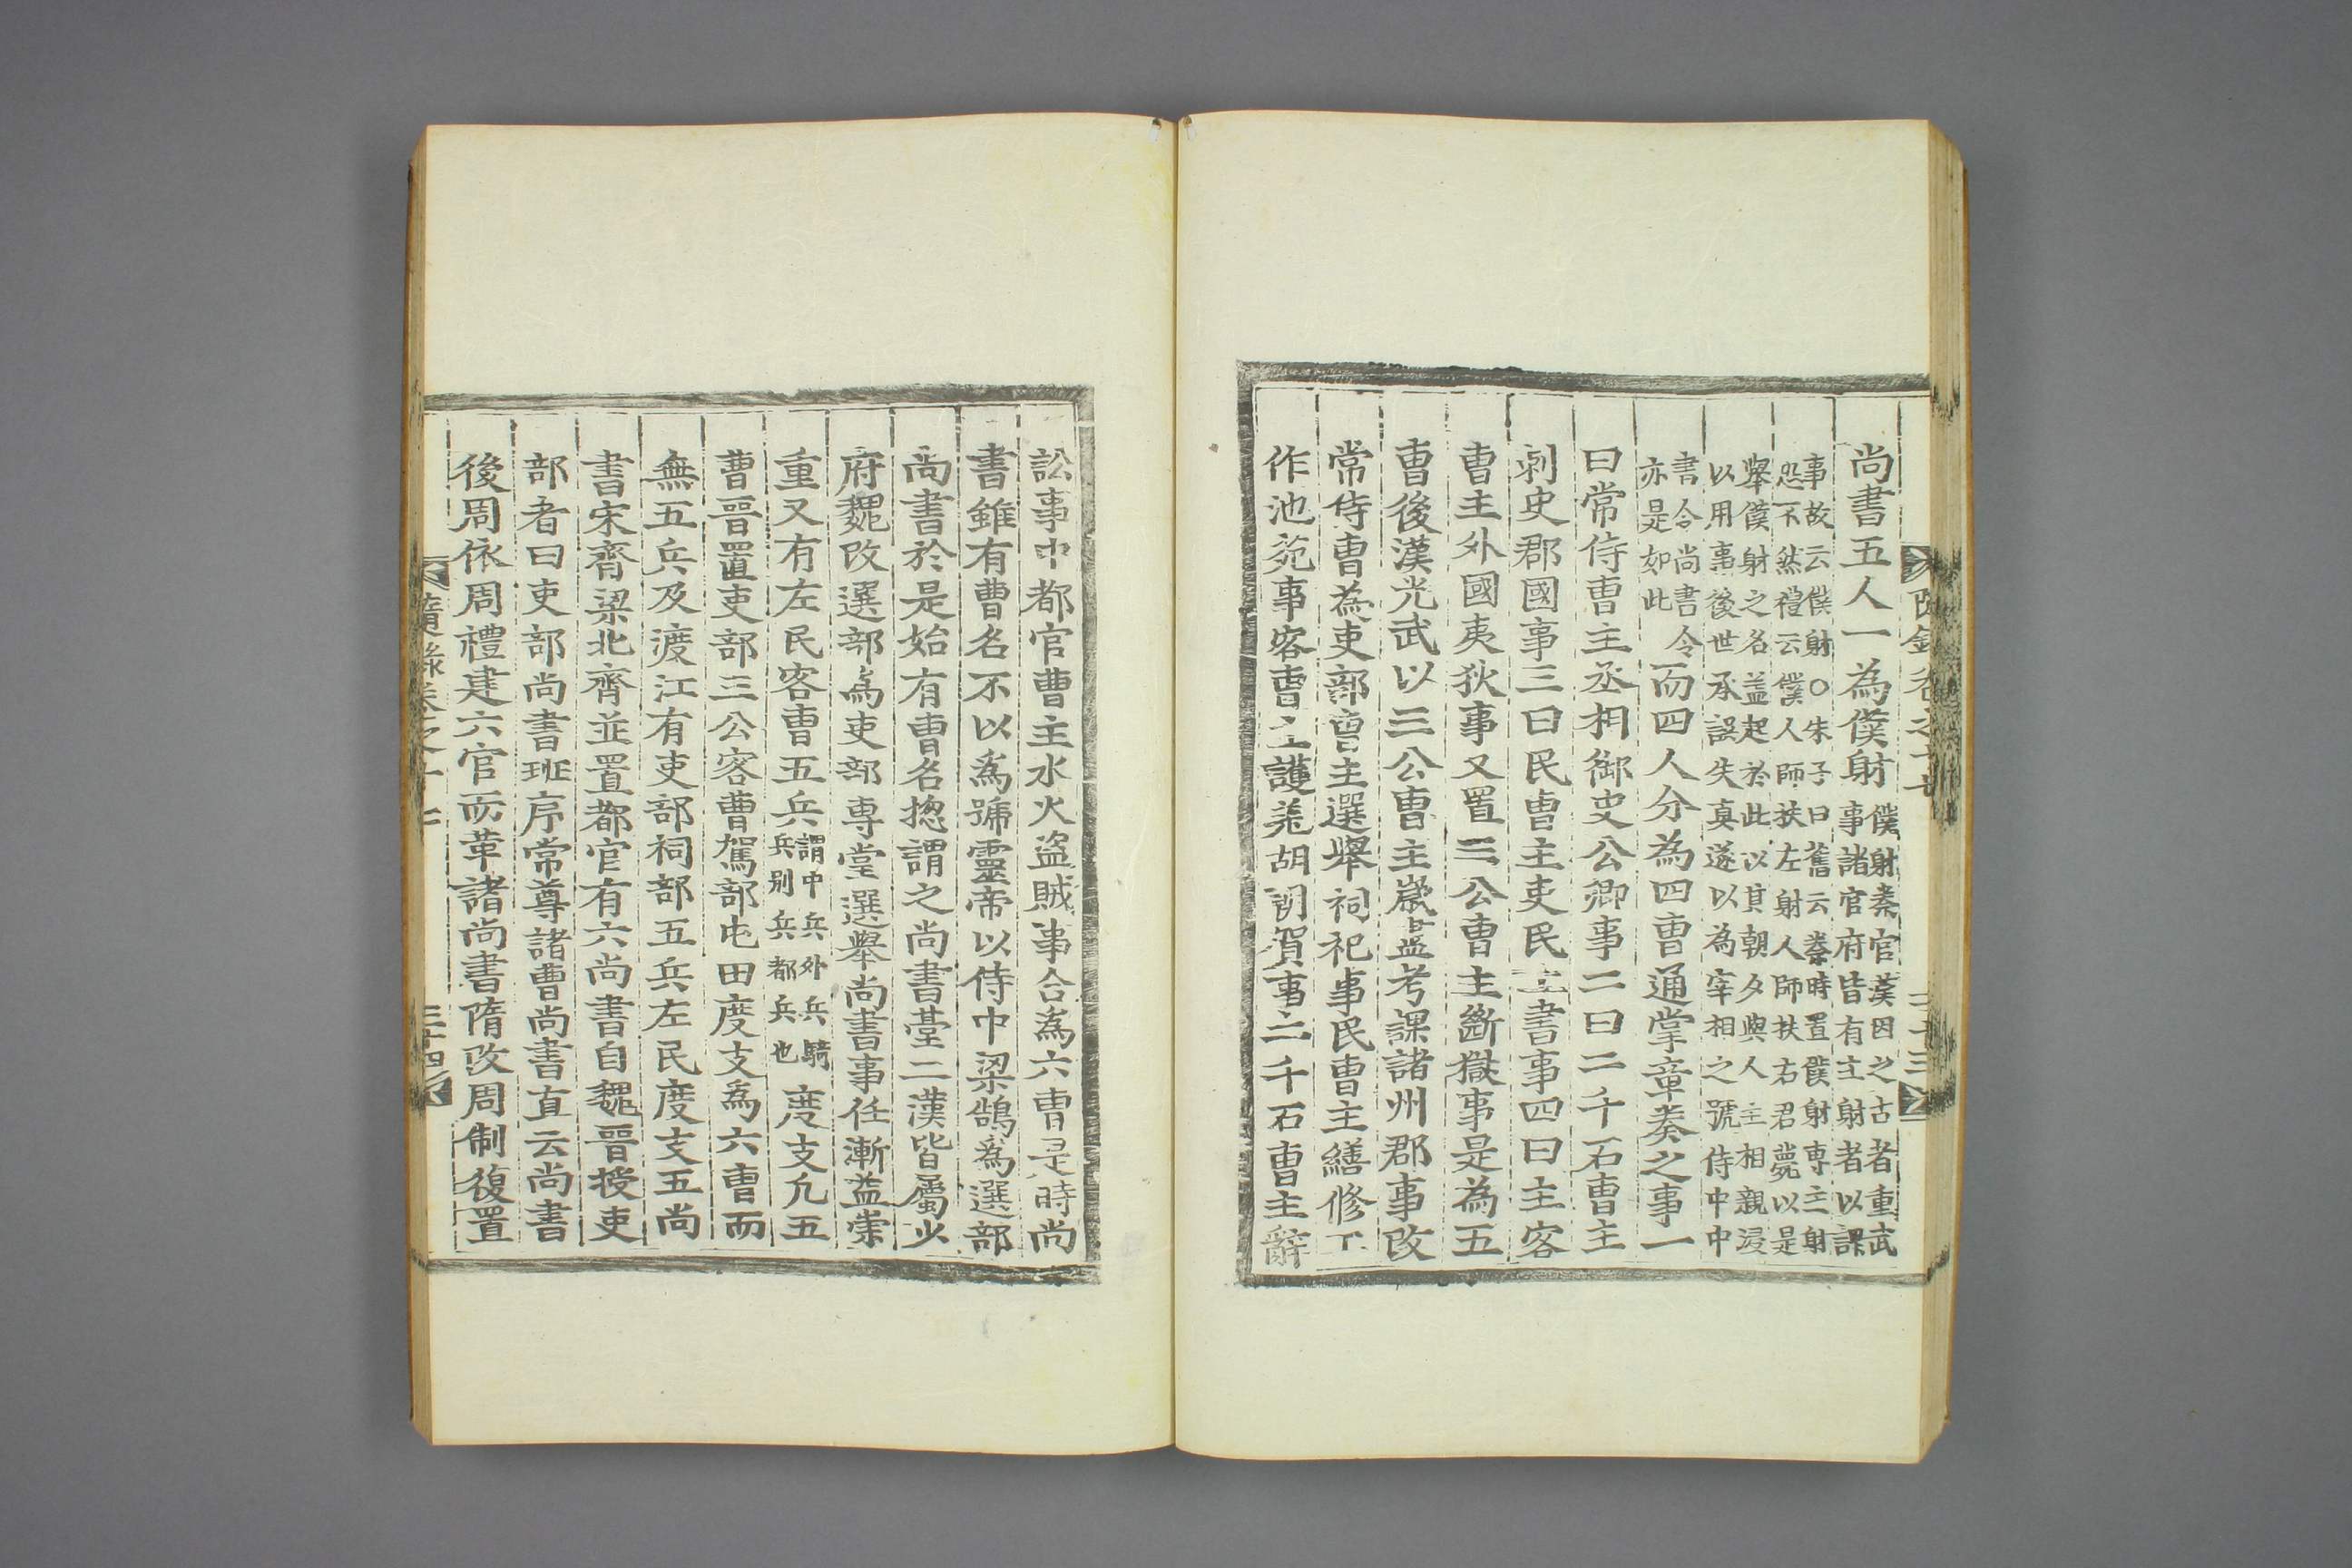 尚書五人一為僕射僕射秦官漢因之古者重武
事諸官府皆有主射者以課
事故云僕射○朱子曰舊云秦時置僕射專主射
恐不然禮云僕人師扶左射人師扶右君薨以是
舉僕射之名盖起於此以其朝夕與人主相親浸
以用事後世承誤失真遂以為宰相之號侍中中
書令尚書令
亦是如此而四人分為四曹通掌章奏之事一
曰常侍曹主丞相御史公卿事二曰二千石曹主
刺史郡國事三曰民曹主吏民上書事四曰主客
曹主外國夷狄事又置三公曹主斷獄事是為五
曹後漢光武以三公曹主歲盡考課諸州郡事改
常侍曹為吏部曹主選舉祠祀事民曹主繕修工
作池苑事客曹主護羌胡朝賀事二千石曹主辭
隨錄卷之十七
二十三
訟事中都官曹主水火盜賊事合為六曹是時尚
書雖有曹名不以為號靈帝以侍中梁鵠為選部
尚書於是始有曹名揔謂之尚書臺二漢皆屬少
府魏改選部為吏部專掌選舉尚書事任漸益崇
重又有左民客曹五兵謂中兵外兵騎
兵別兵都兵也度支凡五
曹晉置吏部三公客曹駕部屯田度支為六曹而
無五兵及渡江有吏部祠部五兵左民度支五尚
書宋齊梁北齊並置都官有六尚書自魏晉授吏
部者曰吏部尚書班序常尊諸曹尚書直云尚書
後周依周禮建六官而革諸尚書隋改周制復置
隨錄卷之十七
二十四